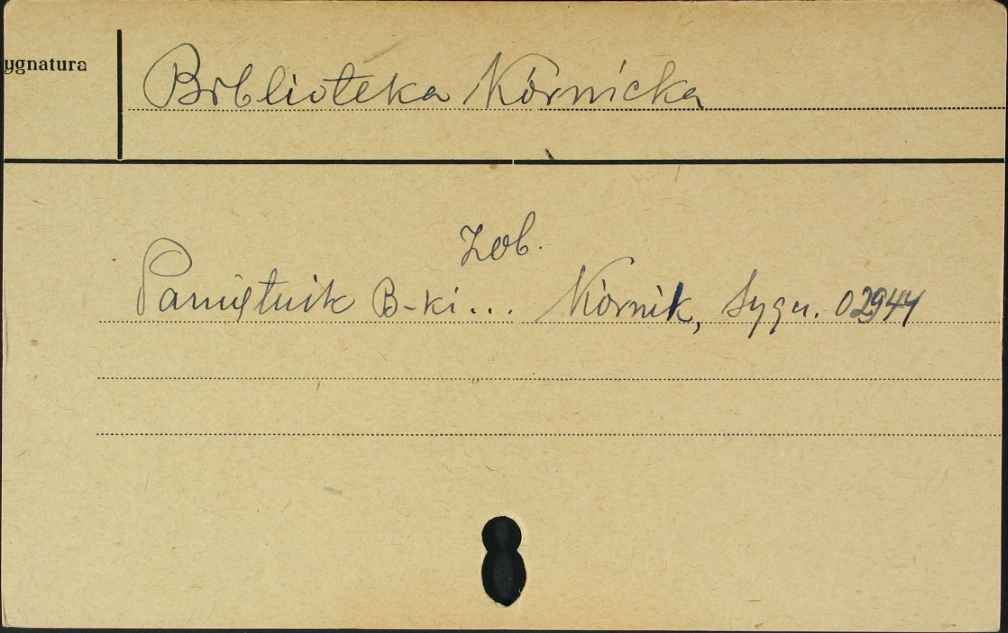 ygnatura
Biblioteka Kórnicka
Zob.
Pamiętnik B-ki... Kórnik, Sygn. 02944